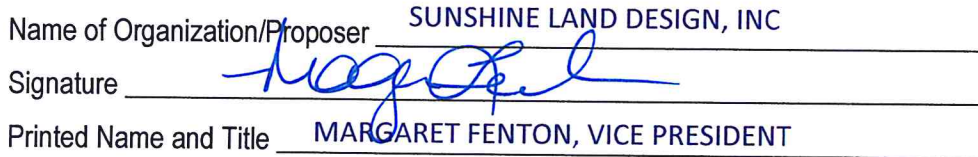 Name of Organization/Proposer SUNSHINE LAND DESIGN, INC
Signature
Printed Name and Title MARGARET FENTON, VICE PRESIDENT